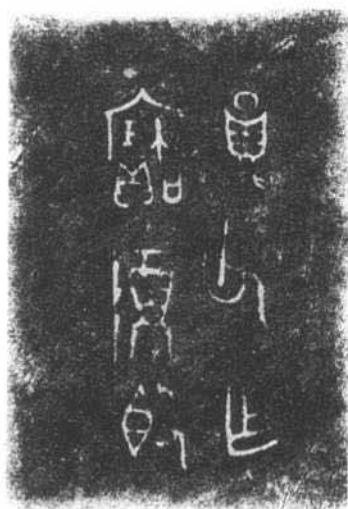 員父乍
寶尊𣪘